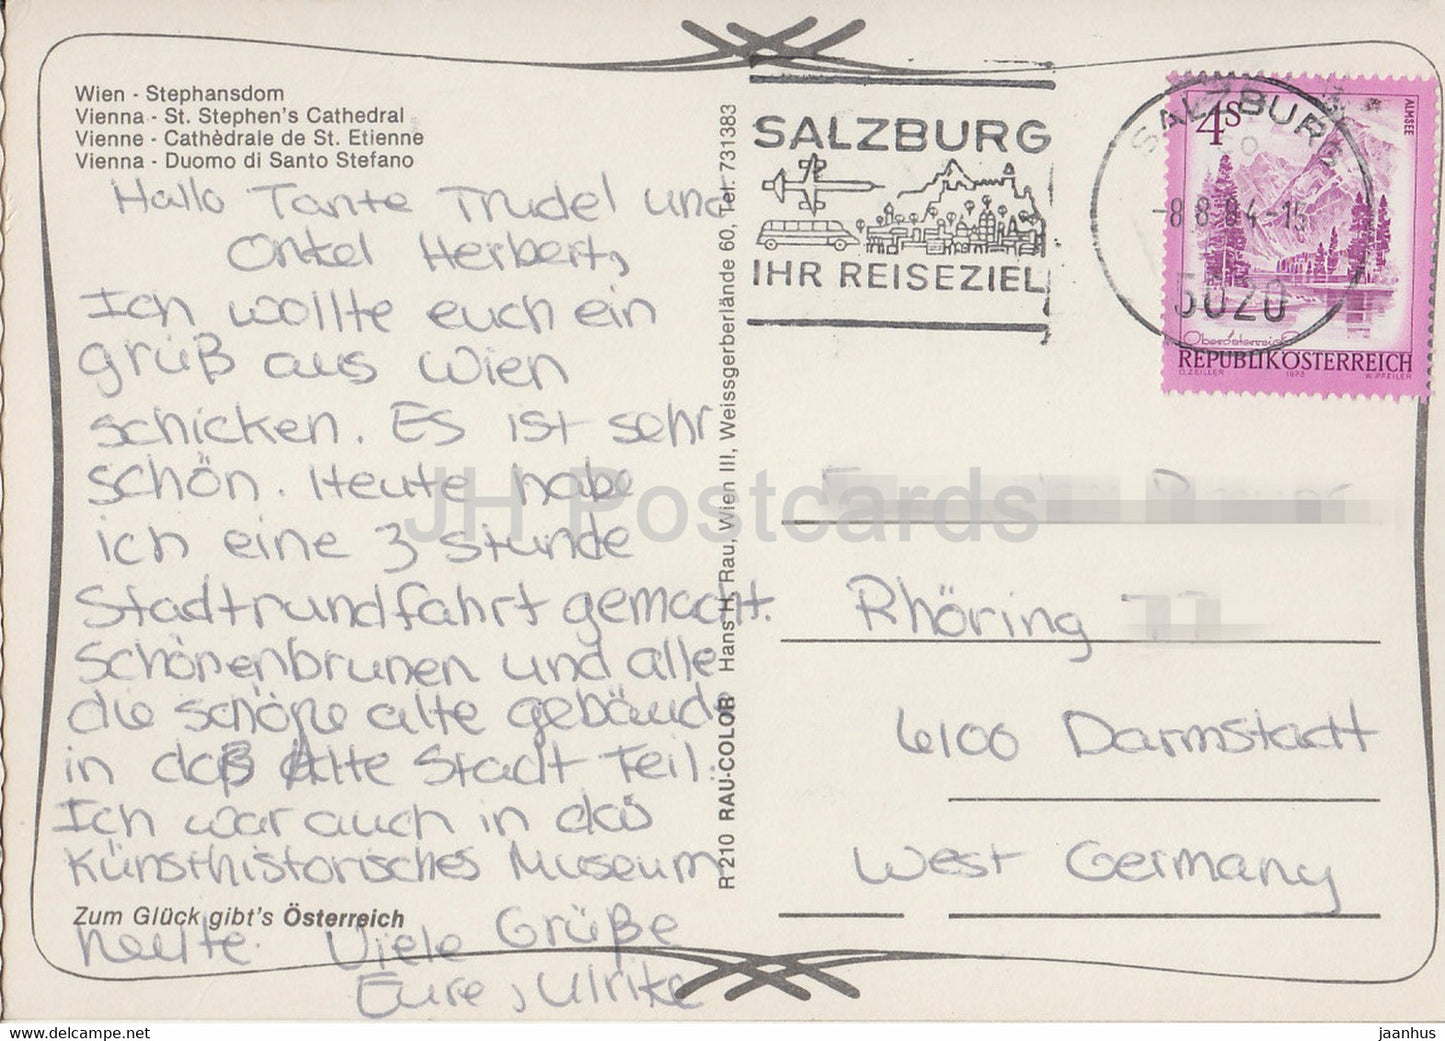 Wien - Stephansdom
Vienna - St. Stephen's Cathedral
Vienne - Cathèdrale de St. Etienne
Vienna - Duomo di Santo Stefano
Hallo Tante Trudel und
Onkel Herbert,
Ich wollte euch ein
grüß aus Wien
schicken. Es ist sehr
schön. Heute habe
ich eine 3 stunde
Stadtrundfahrt gemacht.
Schönenbrunen und alle
die schöne alte gebäude
in daß Alte Stadt Teil.
Ich war auch in das
Künsthistorisches Museum
heute. Viele Grüße
Eure, Ulrike
Zum Glück gibt's Österreich
R 210 RAU-COLOR Hans H. Rau, Wien III, Weissgerberlände 60, Tel. 731383
SALZBURG
IHR REISEZIEL
SALZBURG
-8.8.84-15
5020
4S
ALMSEE
Oberösterreich
REPUBLIK ÖSTERREICH
O. ZEILLER 1973 W. PFEILER
Rhöring
6100 Darmstadt
West Germany
JH Postcards
www.delcampe.net
jaanhus